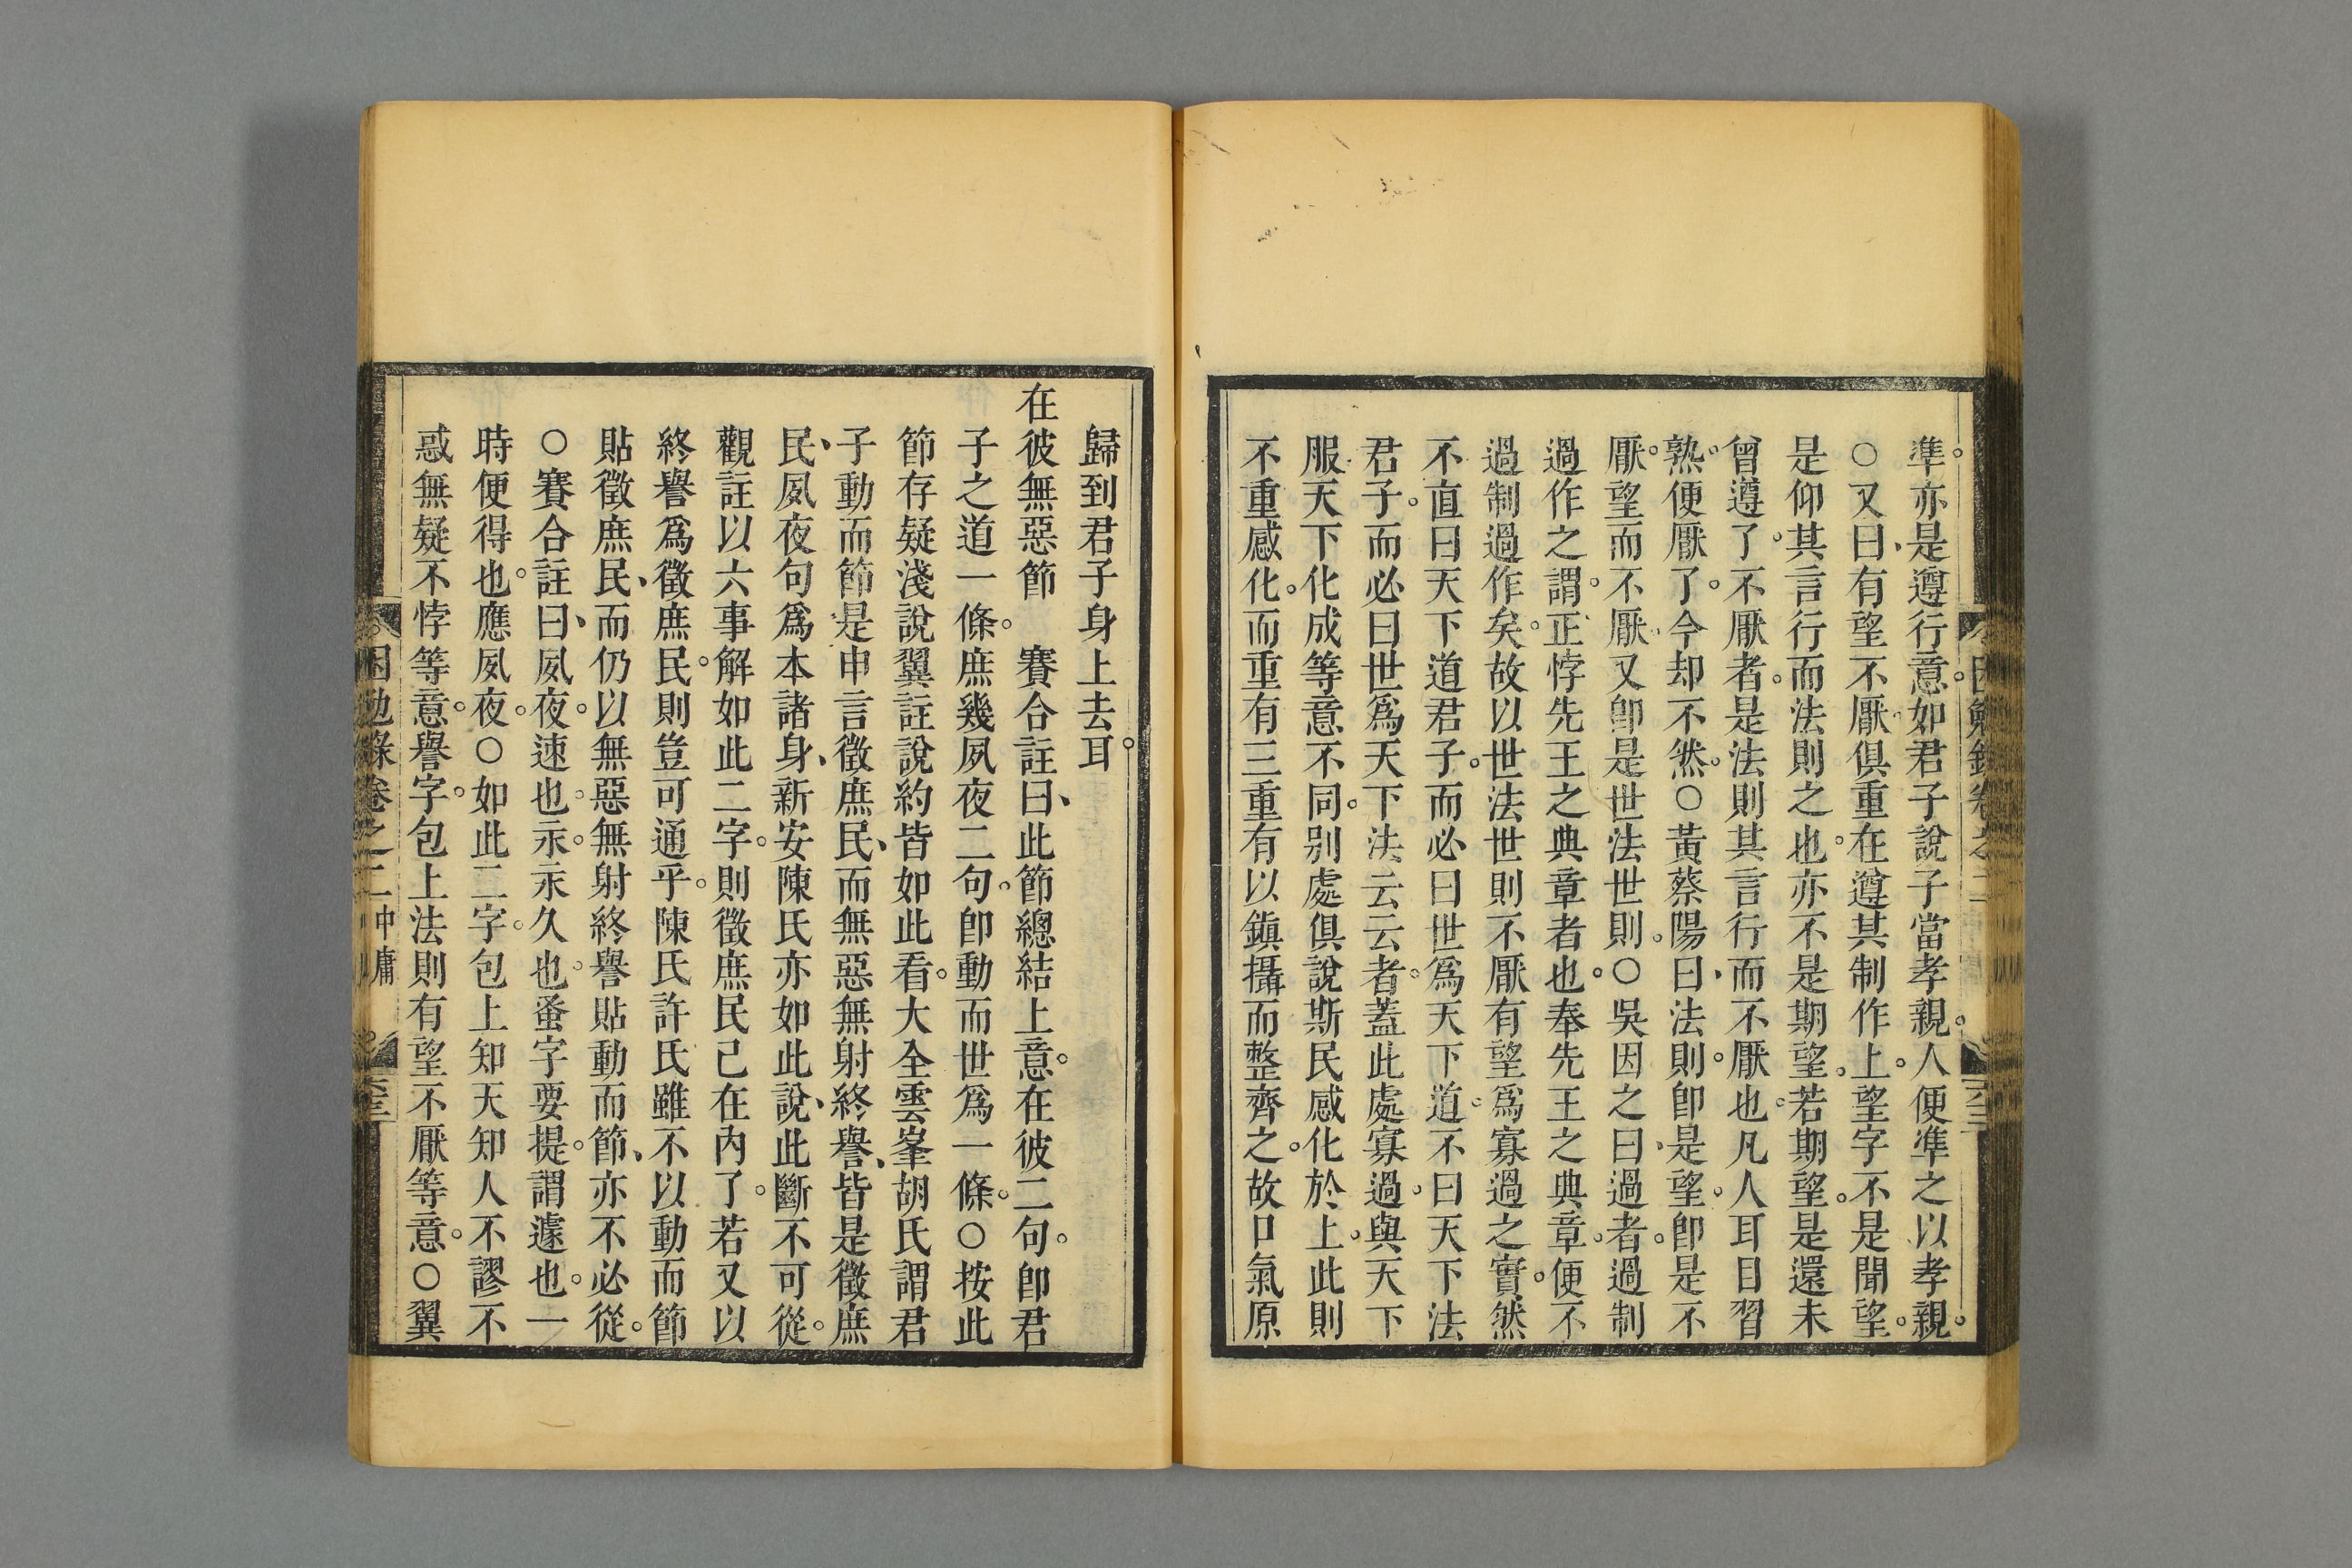 準。亦是遵行意。如君子說子當孝親。人便準之以孝親。
○又曰、有望不厭、俱重在遵其制作上。望字不是聞望。
是仰其言行而法則之也。亦不是期望。若期望。是還未
曾遵了。不厭者。是法則其言行而不厭也。凡人耳目習
熟。便厭了。今却不然。○黃蔡陽曰、法則。卽是望。卽是不
厭。望而不厭、又卽是世法世則。○吳因之曰、過者。過制
過作之謂。正悖先王之典章者也。奉先王之典章。便不
過制過作矣。故以世法世則不厭有望爲寡過之實。然
不直曰天下道君子。而必曰世爲天下道。不曰天下法
君子。而必曰世爲天下法云云者。蓋此處寡過。與天下
服天下化成等意不同。别處俱說斯民感化於上。此則
不重感化。而重有三重有以鎮攝而整齊之。故口氣原
歸到君子身上去耳。
在彼無惡節　賽合註曰、此節總結上意。在彼二句。卽君
子之道一條。庶幾夙夜二句。卽動而世爲一條。○按此
節存疑淺說翼註說約皆如此看。大全雲峯胡氏謂君
子動而節是申言徵庶民、而無惡無射終譽、皆是徵庶
民、夙夜句爲本諸身、新安陳氏亦如此說、此斷不可從。
觀註以六事解如此二字。則徵庶民已在內了。若又以
終譽爲徵庶民。則豈可通乎。陳氏許氏雖不以動而節
貼徵庶民、而仍以無惡無射終譽貼動而節、亦不必從。
○賽合註曰、夙夜。速也。永。永久也。蚤字要提。謂遽也。一
時便得也。應夙夜。○如此二字。包上知天知人不謬不
惑無疑不悖等意。譽字。包上法則有望不厭等意。○翼
困勉錄卷之二 中庸